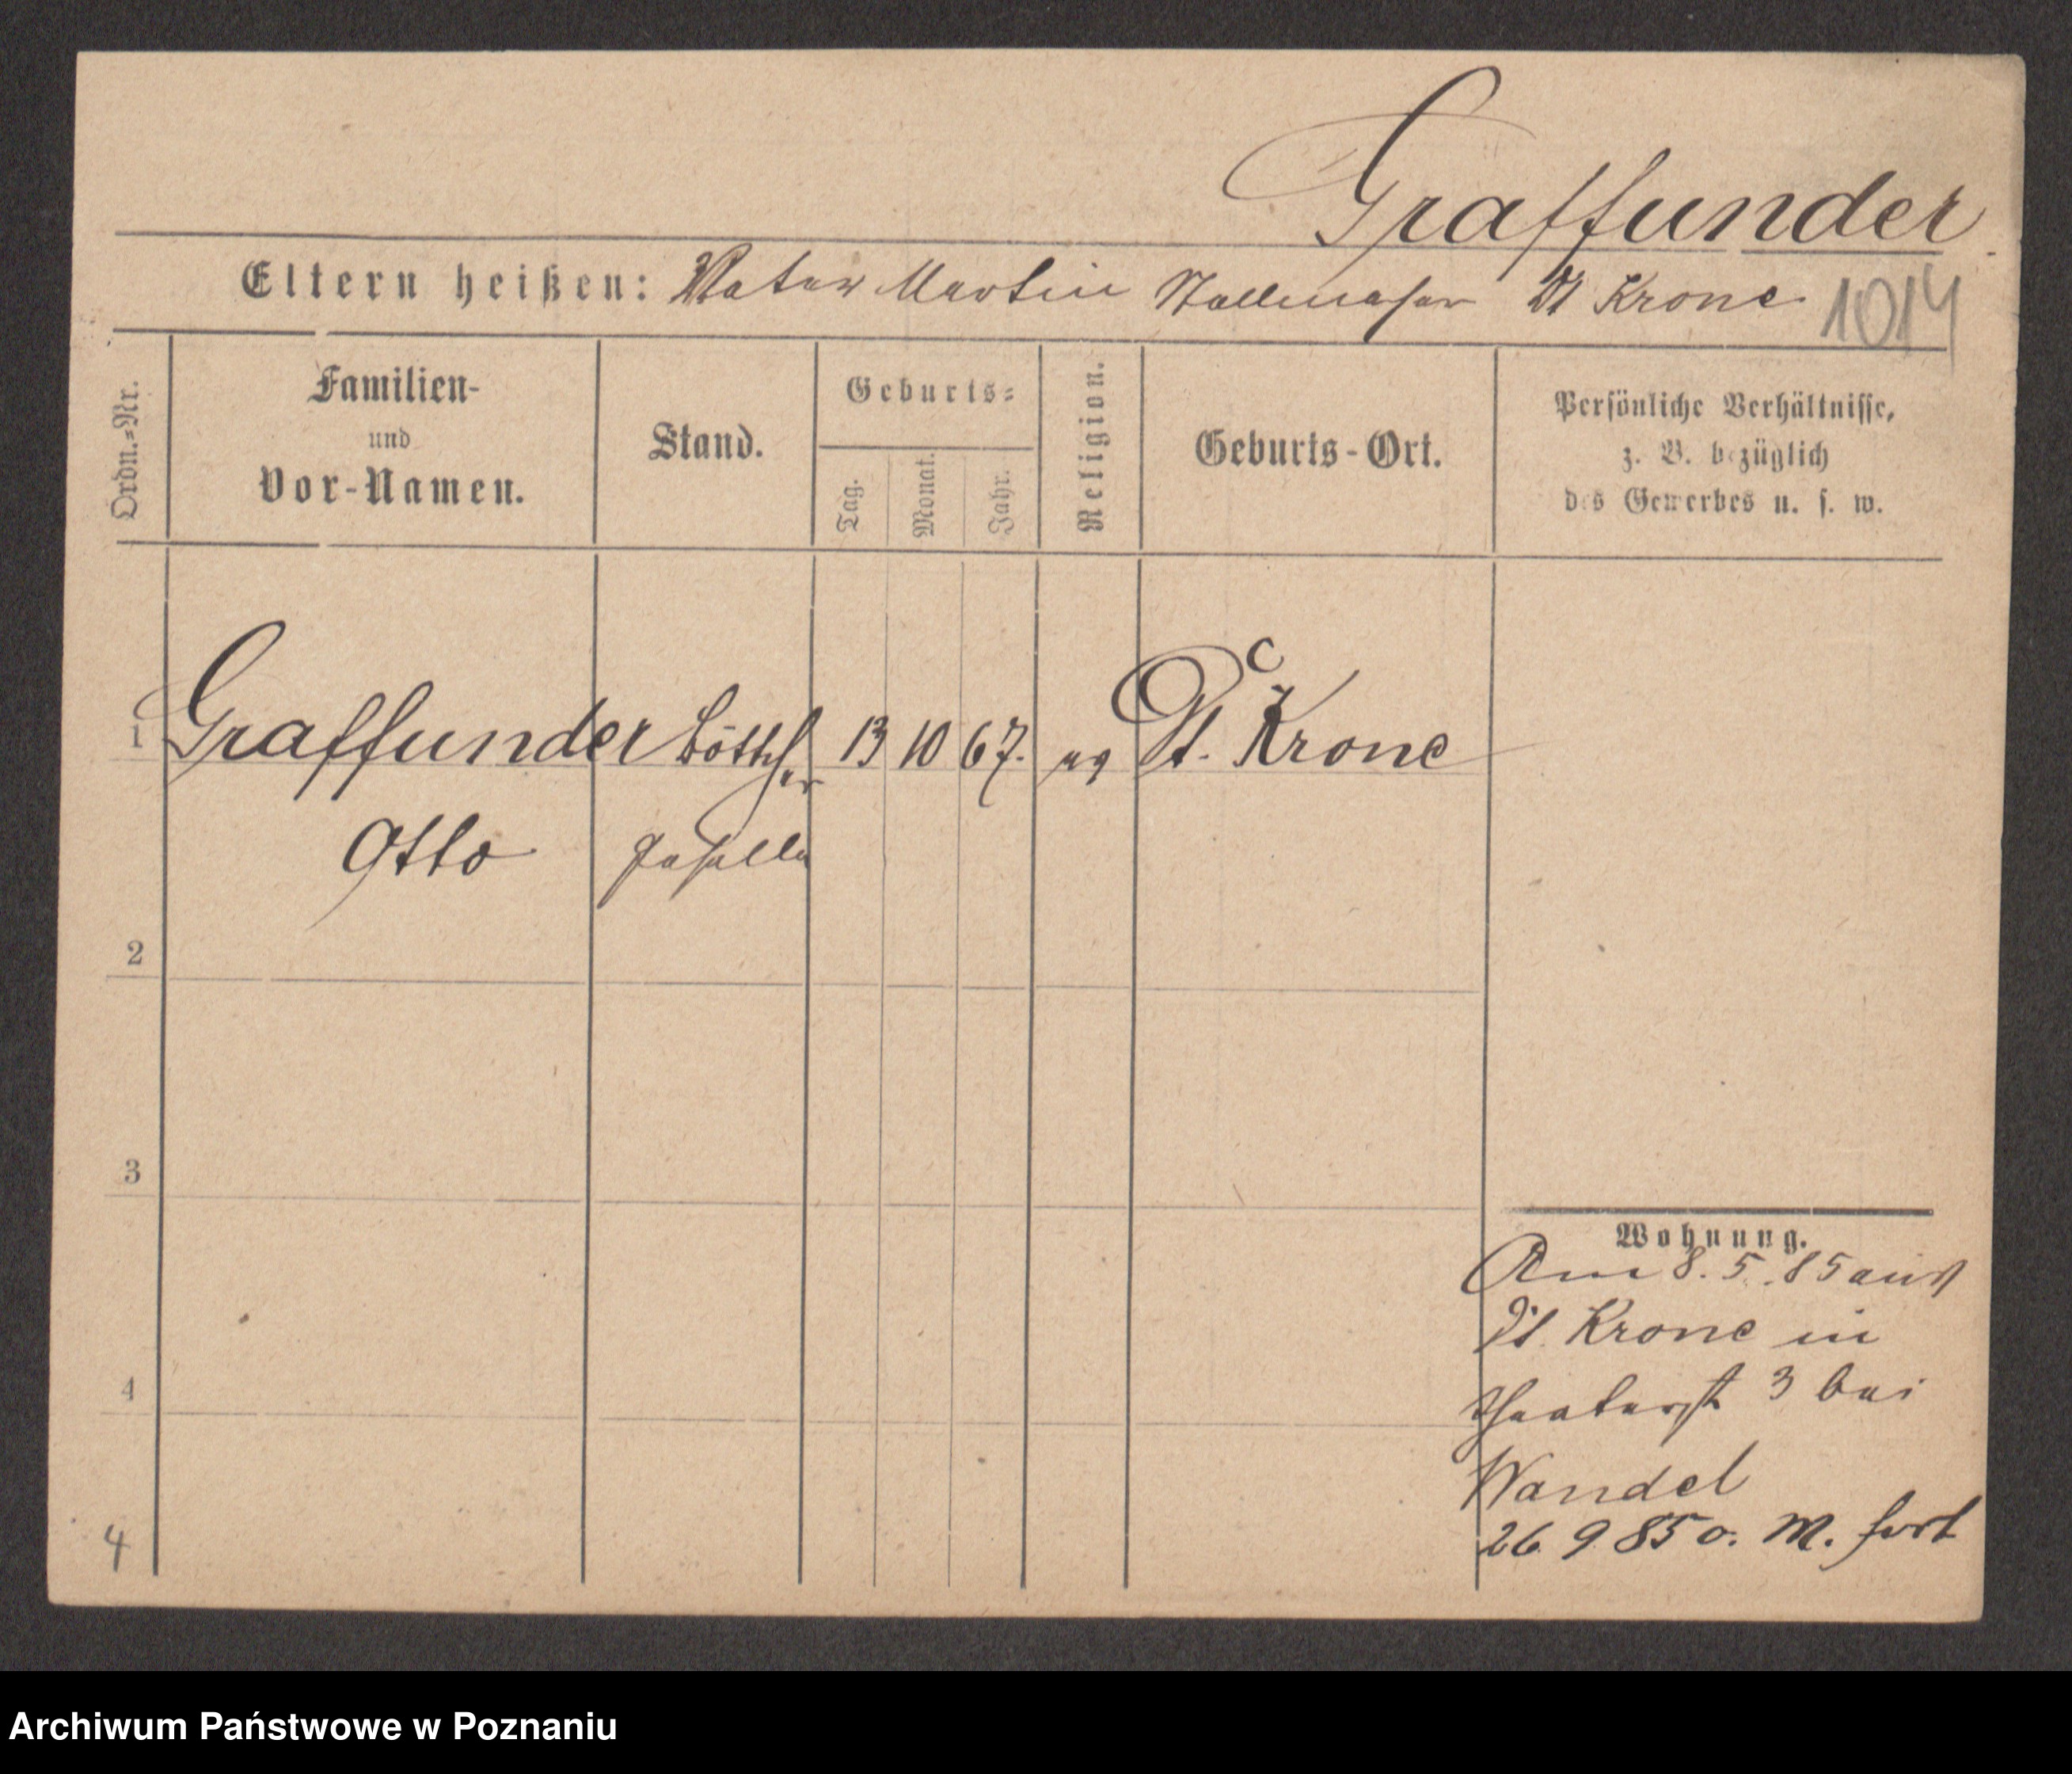 Graffunder
Eltern heißen: Vater Martin Stellmacher Dt Krone 1014
Ordn.=Nr.
Familien-
und
Vor-Namen.
Stand.
Geburts=
Tag.
Monat.
Jahr.
Religion.
Geburts-Ort.
Persönliche Verhältnisse,
z. B. bezüglich
des Gewerbes u. s. w.
1 Graffunder Böttcher 13 10 67. ev Dt. Krone
Otto Geselle
2
3
4
4
Wohnung.
Am 8.5.85 aus
Dt. Krone in
Theaterst 3 bei
Wandel
26 9 85 o. M. fort
Archiwum Państwowe w Poznaniu